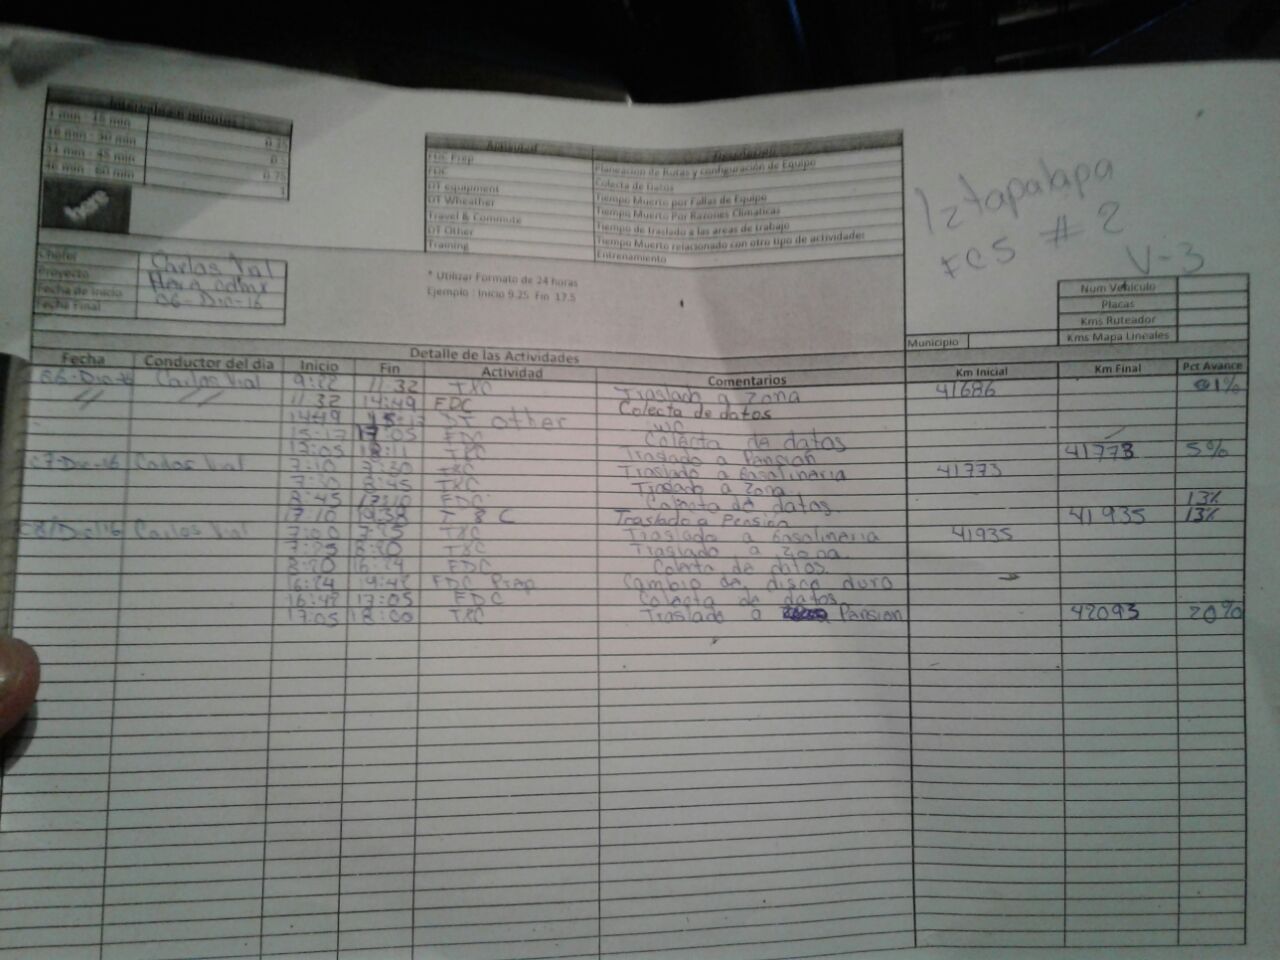 Intervalos en minutos
1 min - 15 min 0.25
16 min - 30 min 0.5
31 min - 45 min 0.75
46 min - 60 min 1
Actividad Descripcion
FDC Prep Planeacion de Rutas y configuración de Equipo
FDC Colecta de Datos
DT equipment Tiempo Muerto por Fallas de Equipo
DT Wheather Tiempo Muerto Por Razones Climaticas
Travel & Commute Tiempo de traslado a las areas de trabajo
DT Other Tiempo Muerto relacionado con otro tipo de actividades
Training Entrenamiento
Iztapalapa
FCS # 2
V-3
Chofer Carlos Vial
Proyecto
Fecha de inicio 06-Dic-16
Fecha Final
* Utilizar Formato de 24 horas
Ejemplo : Inicio 9.25 Fin 17.5
Num Vehiculo
Placas
Kms Ruteador
Municipio Kms Mapa Lineales
Detalle de las Actividades
Fecha Conductor del dia Inicio Fin Actividad Comentarios Km Inicial Km Final Pct Avance
06-Dic-16 Carlos Vial 9:22 11:32 T&C Traslado a Zona 41686 1%
// // 11:32 14:49 FDC Colecta de datos
14:49 15:17 DT other
15:17 17:05 FDC Colecta de datos
17:05 18:11 T&C Traslado a Pension 41773 5%
07-Dic-16 Carlos Vial 7:10 7:30 T&C Traslado a Gasolinaria 41773
7:30 8:45 T&C Traslado a Zona
8:45 17:10 FDC Colecta de datos 13%
17:10 19:38 T & C Traslado a Pension 41935 13%
08/Dic/16 Carlos Vial 7:00 7:25 T&C Traslado a Gasolinaria 41935
7:25 8:20 T&C Traslado a Zona
8:20 16:24 FDC Colecta de datos
16:24 FDC Prep Cambio de disco duro
16:48 17:05 FDC Colecta de datos
17:05 18:00 T&C Traslado a Pension 42093 20%